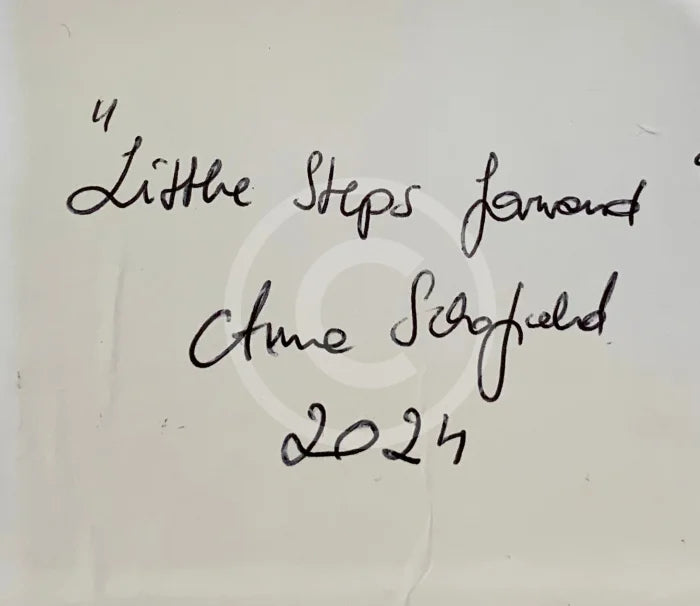 "Little Steps forward"
Anne Schofield
2024